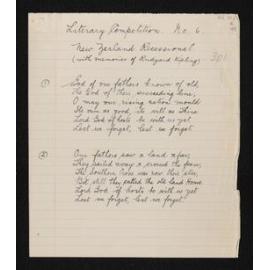 Literary Competition. No. 6.
New Zealand Recessional
(with memories of Rudyard Kipling)
①
God of our fathers known of old,
The God of their unceasing line,
O may our rising nation mould
Its own as good, its will as Thine
Lord God of hosts be with us yet
Lest we forget, lest we forget.
②
Our fathers saw a land afar,
They sailed away around the foam,
The Southern Cross was now their star,
But still they called the old land Home
Lord God of hosts be with us yet
Lest we forget, lest we forget